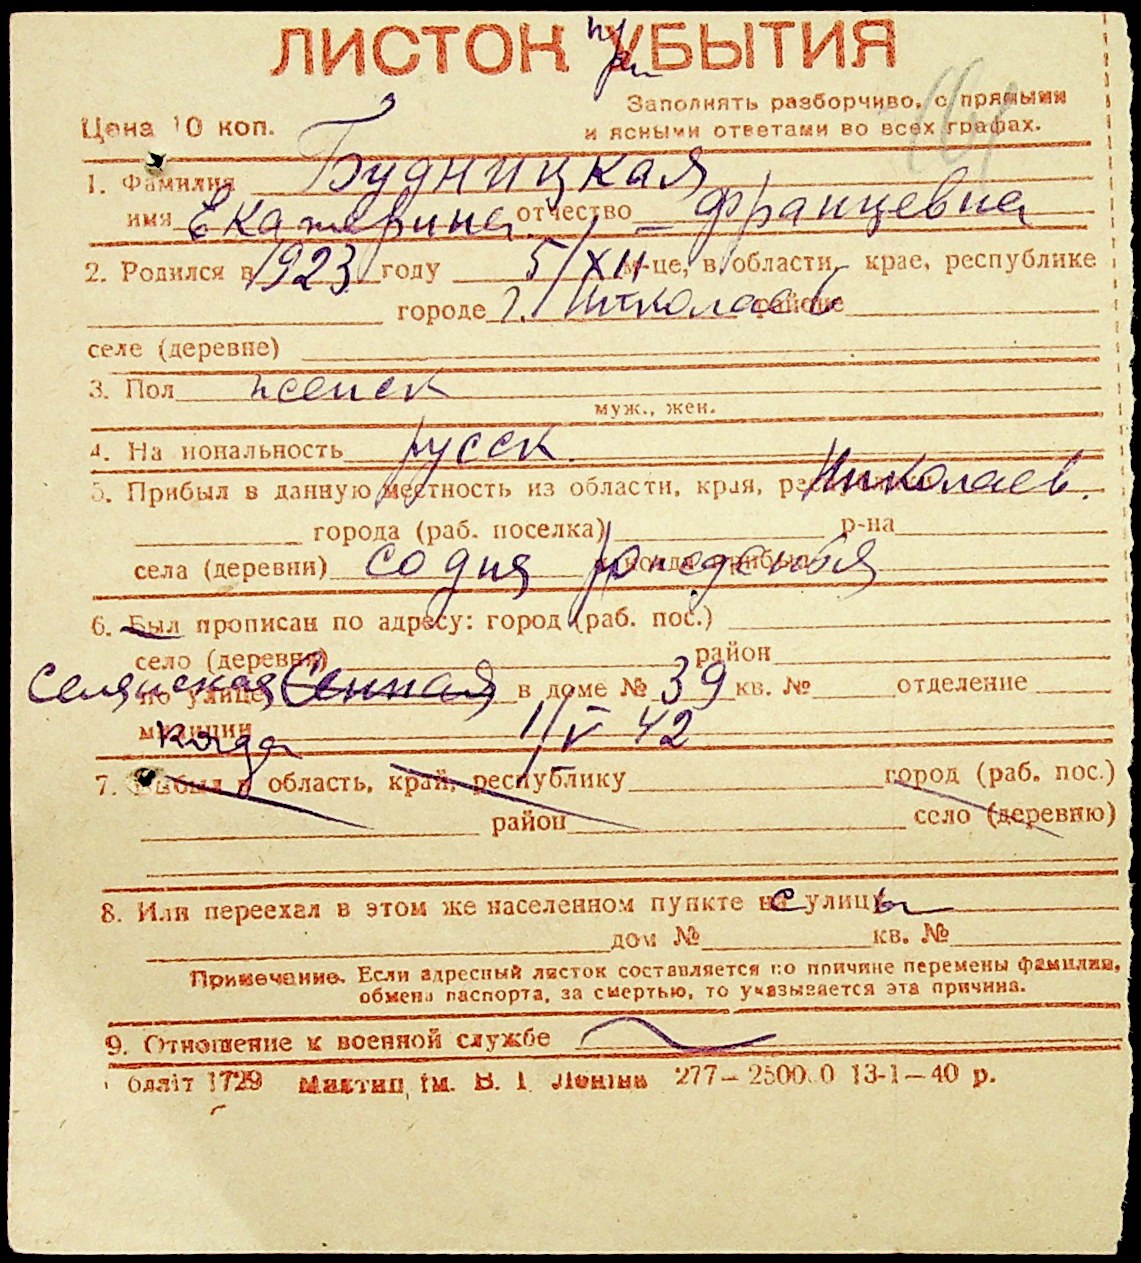 ЛИСТОК УБЫТИЯ
Заполнять разборчиво, с прямыми
Цена 10 коп. и ясными ответами во всех графах.
1. Фамилия Будницкая
имя Екатерина отчество Францевна
2. Родился в 1923 году 5/XII м-це, в области, крае, республике
городе г. Николаев районе
селе (деревне)
3. Пол женск
муж., жен.
4. На иональность русск.
5. Прибыл в данную местность из области, края, Николаев.
города (раб. поселка) р-на
села (деревни) со дня рождения
6. Был прописан по адресу: город (раб. пос.)
село (деревня) район
Селянская Сенная по улице в доме № 39 кв. № отделение
милиции когда 1/V 42
7. Выбыл в область, край, республику город (раб. пос.)
район село (деревню)
8. Или переехал в этом же населенном пункте с улицы
дом № кв. №
Примечание. Если адресный листок составляется по причине перемены фамилии,
обмена паспорта, за смертью, то указывается эта причина.
9. Отношение к военной службе
бліт 1729 Миктип, ім. В. І. Леніна 277—2500 0 13-1—40 р.